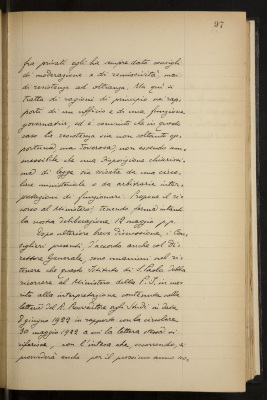 97
fra privati egli ha sempre dato consigli
di moderazione e di remissività, mai
di resistenza ad oltranza. Ma qui si
tratta di ragioni di principio nei rap-
porti di un ufficio e di una funzione
governativa, ed è convinto che in questo
caso la resistenza sia non soltanto op-
portuna ma doverosa, non essendo am-
missibile che una disposizione chiarissi-
ma di legge sia violata da una circo-
lare ministeriale o da arbitrarie inter-
pretazioni di funzionari. Propone il ri-
corso al Ministero, tenendo ferma intanto
la nostra deliberazione 12 maggio p.p.
Dopo ulteriore breve discussione, i Con-
siglieri presenti, d'accordo anche col Di-
rettore Generale, sono unanimi nel ri-
tenere che questo Istituto di S. Paolo debba
ricorrere al Ministero della P. I. in me-
rito alla interpretazione contenuta nella
lettera del R. Provveditore agli Studi in data
8 giugno 1922 in rapporto con la circolare
30 maggio 1922 a cui la lettera stessa si
riferisce, con l'intesa che, occorrendo, si
provvederà anche per il prossimo anno sco-